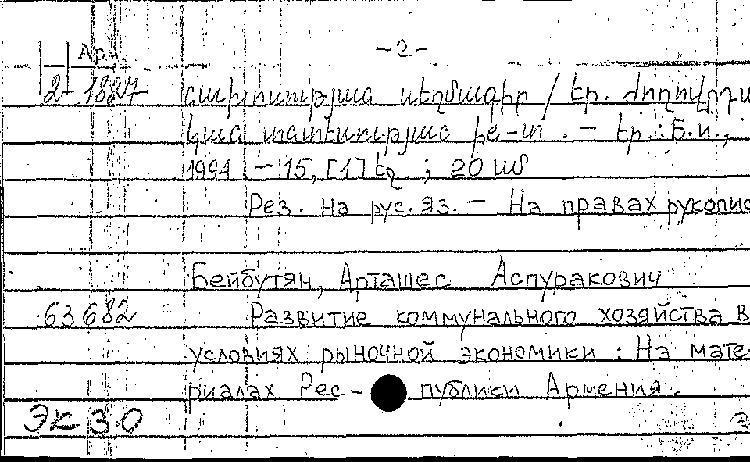 Ар. -2-
2 1827 րափոտության սեղմագիր / Եր. ժողովրդա
կան տնտեսության ին-տ . – Եր. : Б.и.,
1994 – 15, [1] էջ ; 20 սմ
Рез. на рус. яз. – На правах рукопис
Бейбутян, Арташес Аспуракович
63682 Развитие коммунального хозяйства в
условиях рыночной экономики : На мате
риалах Рес- публики Армения.
ЭК 30 3